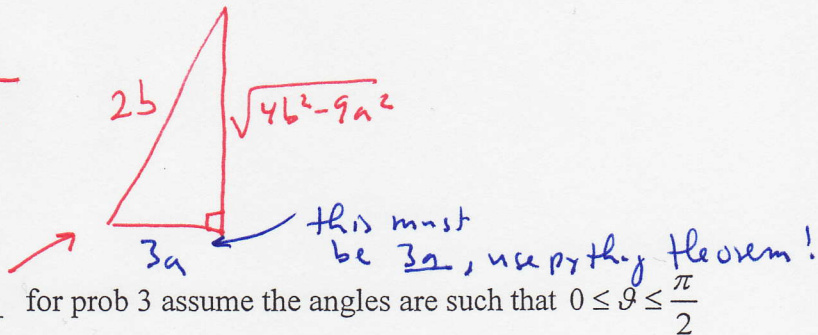 2b
√(4b²-9a²)
3a
this must
be 3a, use pythag theorem!
for prob 3 assume the angles are such that 0 ≤ ϑ ≤ π/2